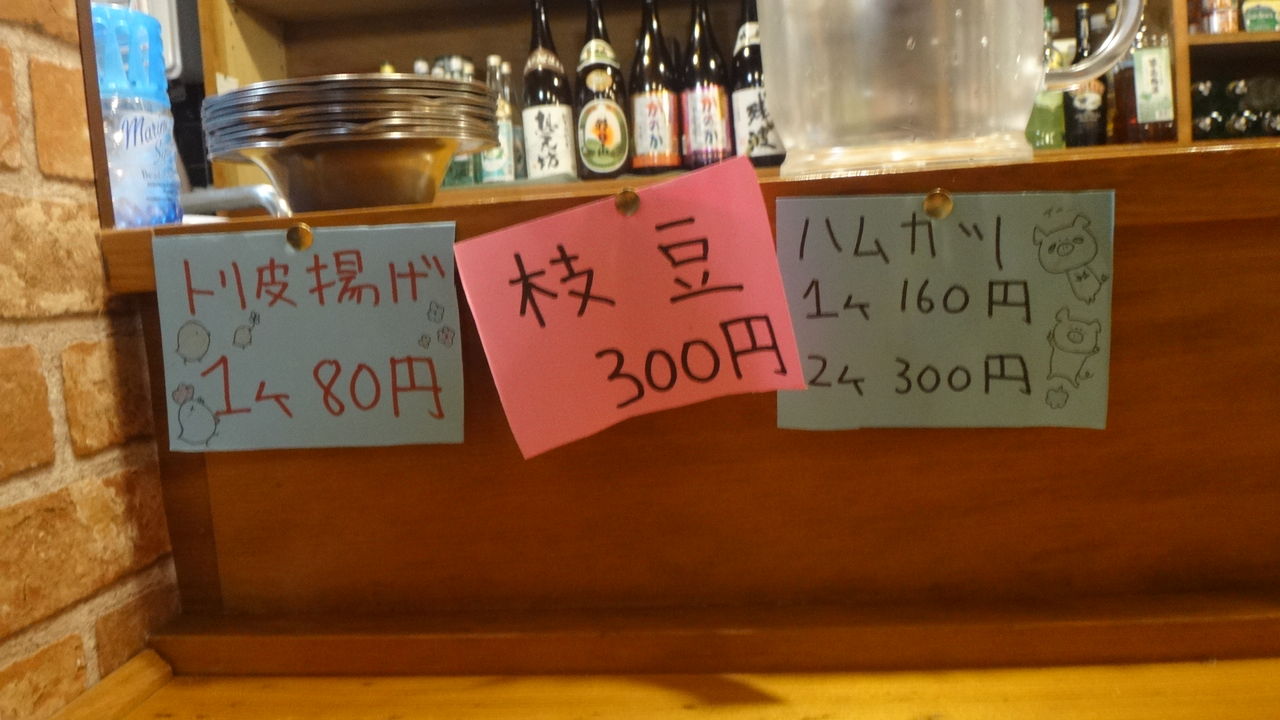 トリ皮揚げ
1ヶ 80円
枝豆
300円
ハムカツ
1ヶ 160円
2ヶ 300円
かのか
かのか
残波